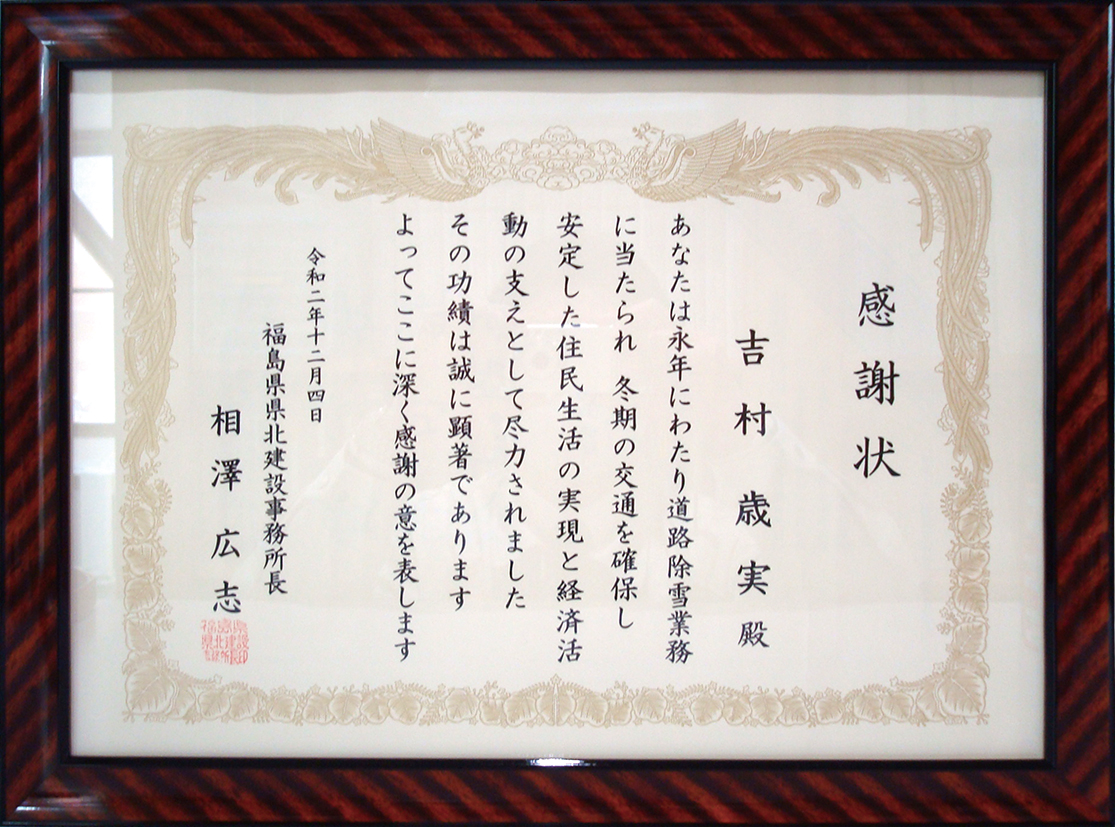 感謝状
吉村歳実殿
あなたは永年にわたり道路除雪業務
に当たられ 冬期の交通を確保し
安定した住民生活の実現と経済活
動の支えとして尽力されました
その功績は誠に顕著であります
よってここに深く感謝の意を表します
令和二年十二月四日
福島県県北建設事務所長
相澤広志